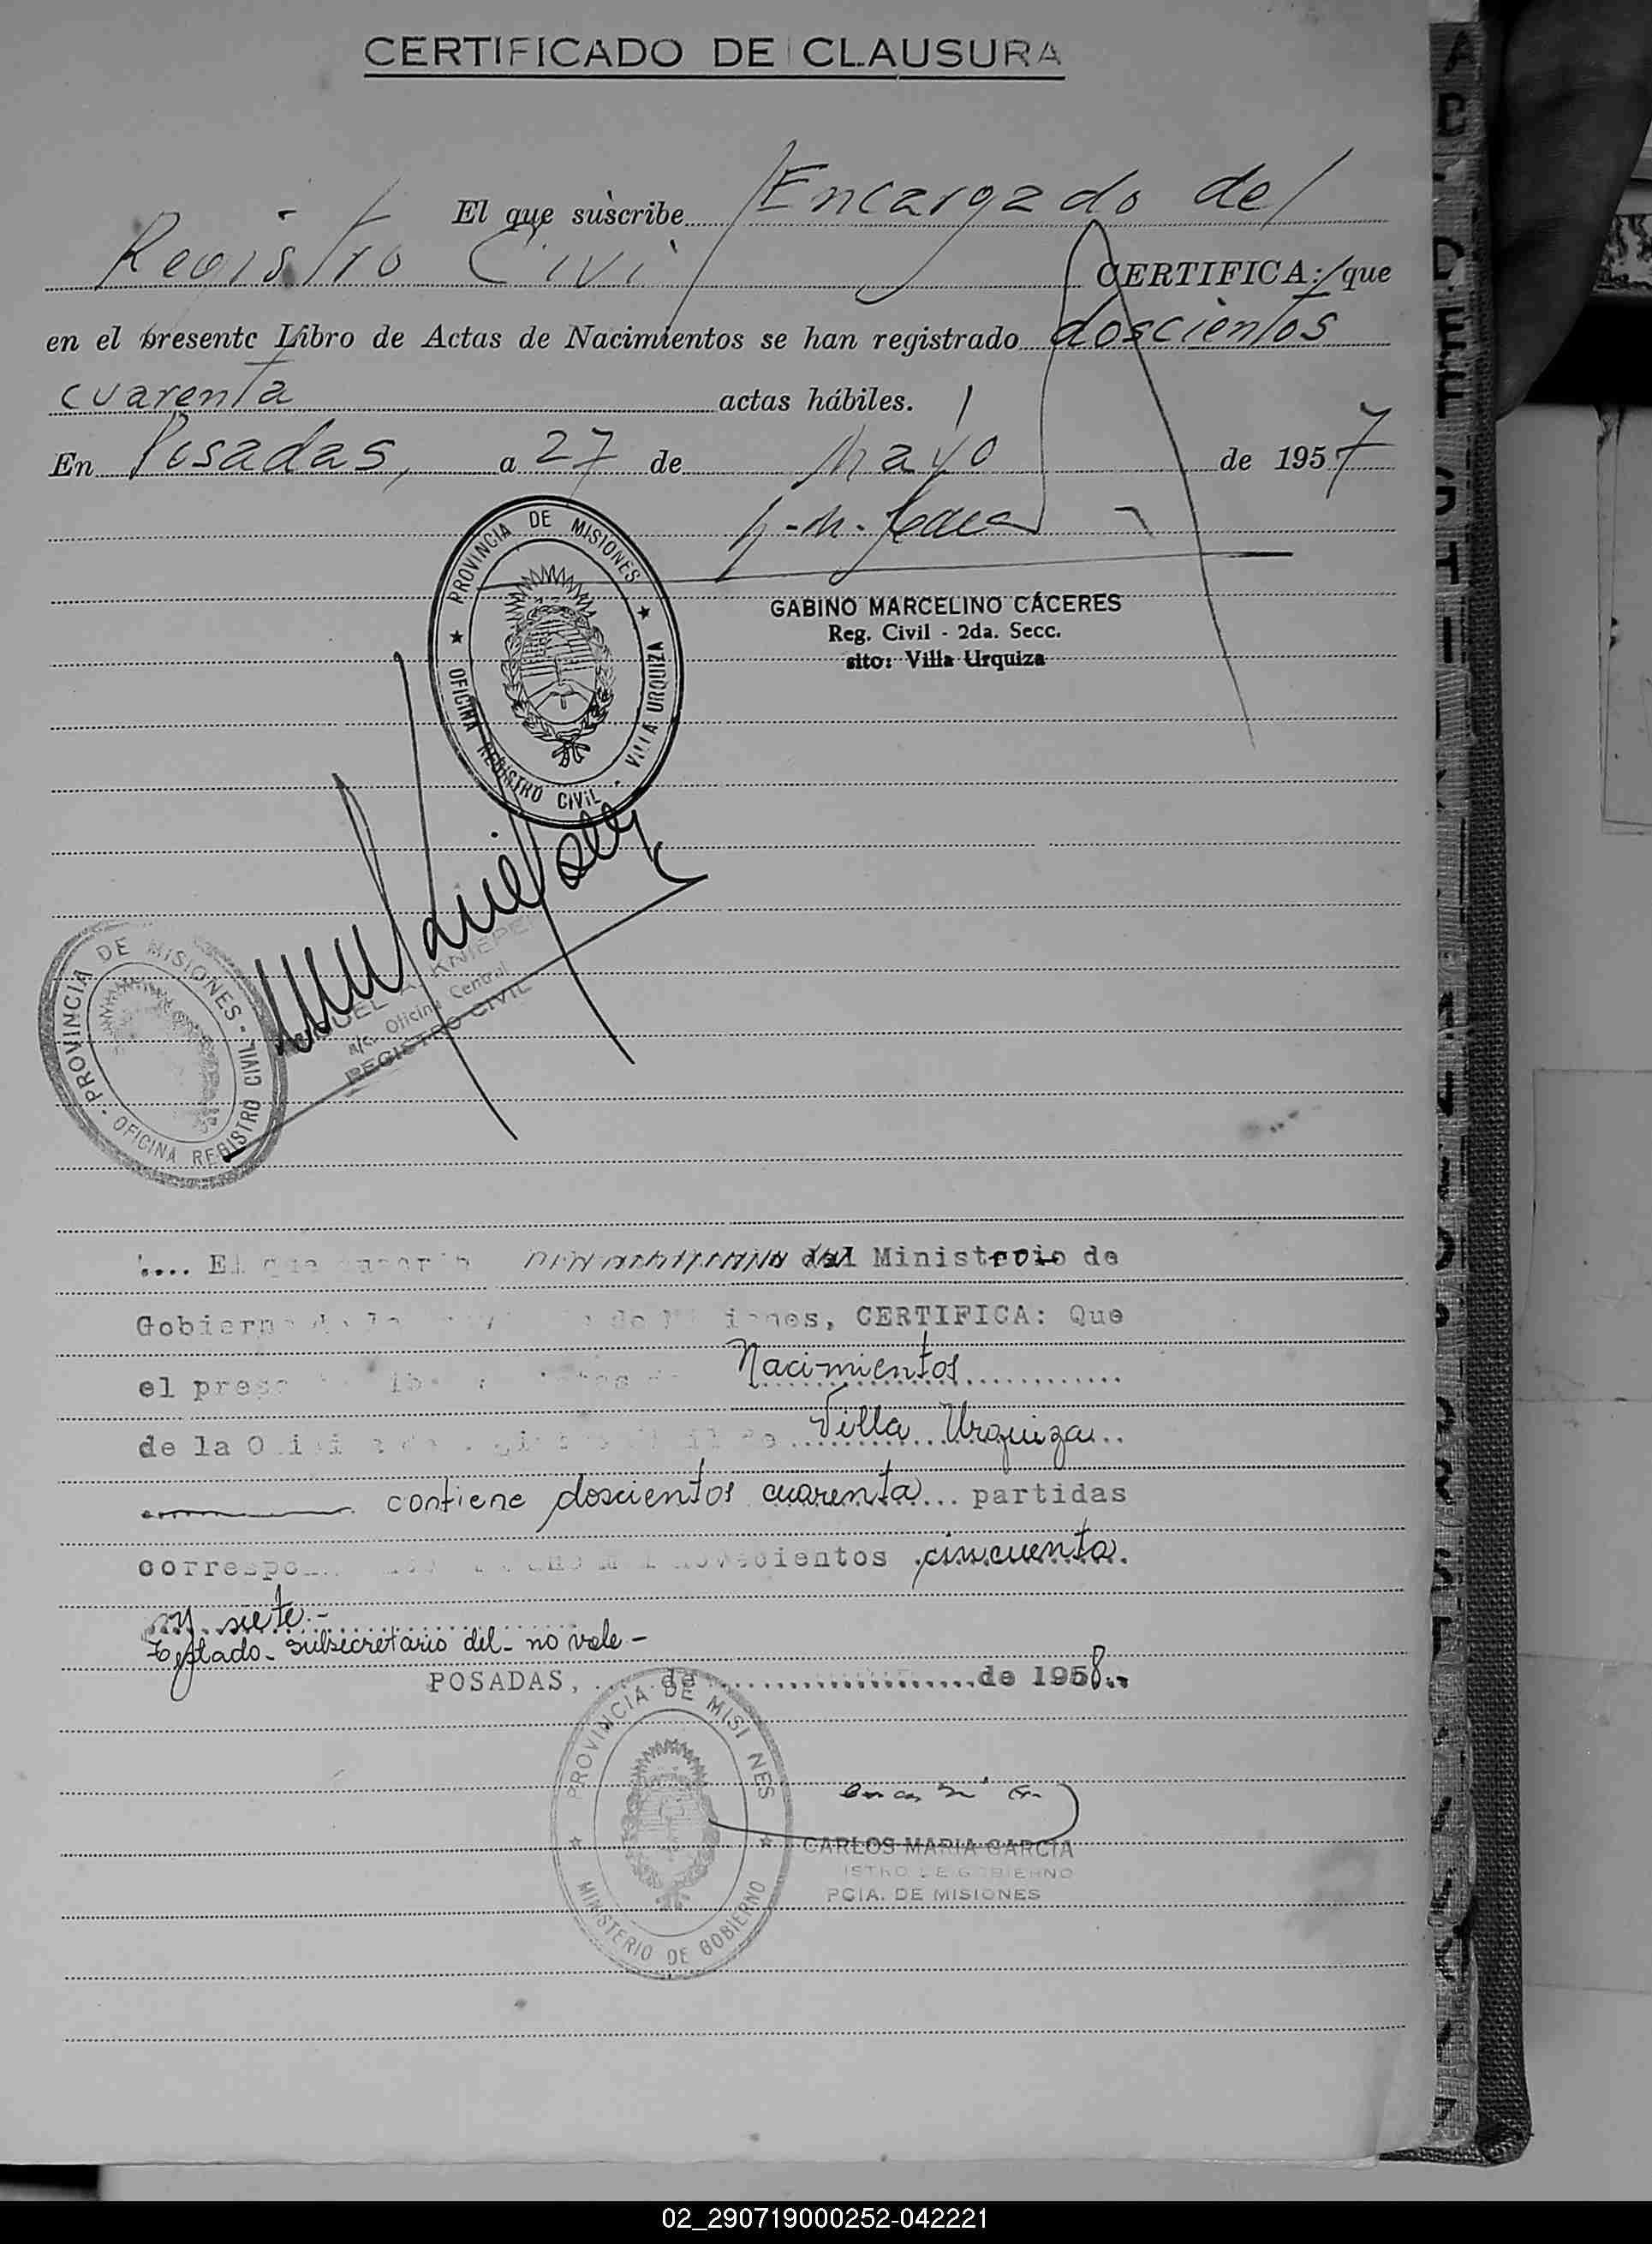 CERTIFICADO DE CLAUSURA
El que suscribe Encargado del
Registro Civil CERTIFICA: que
en el presente Libro de Actas de Nacimientos se han registrado doscientos
cuarenta actas hábiles.
En Posadas, a 27 de Mayo de 1957
PROVINCIA DE MISIONES
OFICINA REGISTRO CIVIL - VILLA URQUIZA
GABINO MARCELINO CÁCERES
Reg. Civil - 2da. Secc.
sito: Villa Urquiza
PROVINCIA DE MISIONES
OFICINA REGISTRO CIVIL
KNIEPE
a/c. Oficina Central
REGISTRO CIVIL
.... El que del Ministerio de
Gobierno de la de Misiones, CERTIFICA: Que
el Nacimientos
de la Villa Urquiza
contiene doscientos cuarenta partidas
novecientos cincuenta
y siete.-
Testado - subsecretario del - no vale -
POSADAS, .... de .................... de 1958..
PROVINCIA DE MISI NES
MINISTERIO DE GOBIERNO
CARLOS MARIA GARCIA
ISTRO DE GOBIERNO
PCIA. DE MISIONES
02_290719000252-042221